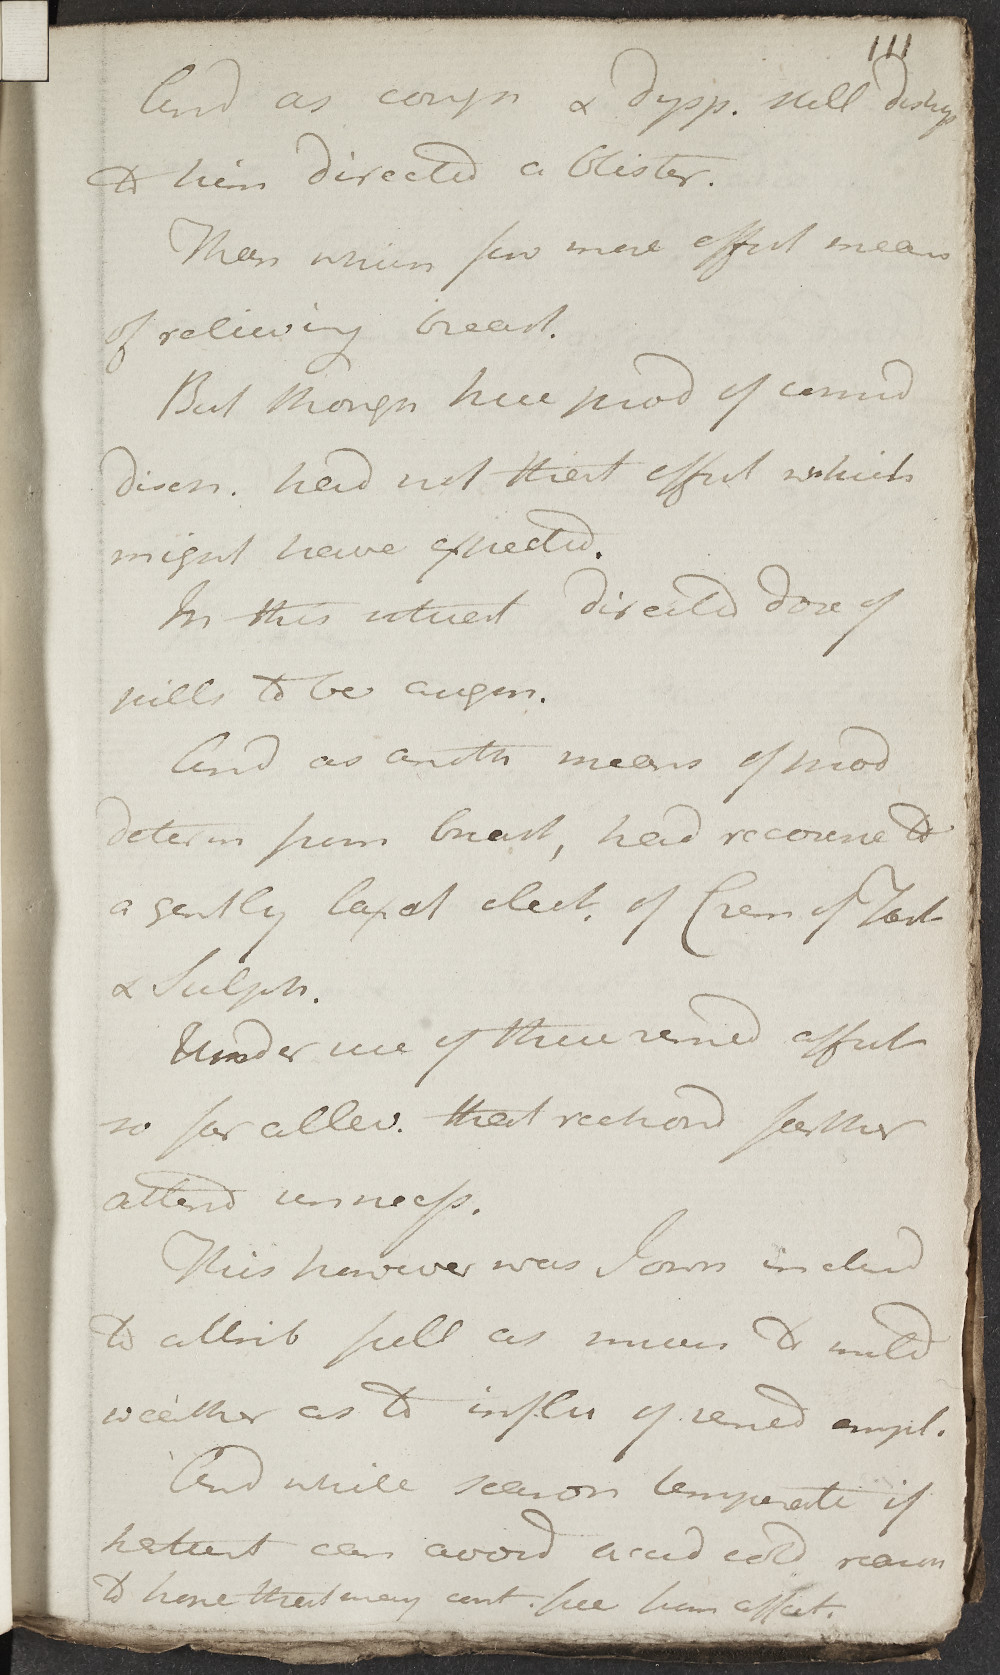 111
And as cough & dysp. still
to him directed a blister.
Than which few more effect means
of relieving breast.
But though here prod of consid
disch. had not that effect which
might have expected.
In this state directed dose of
pills to be augm.
And as anoth means of prod
determ from breast, had recourse to
a gently laxat elect. of Crem of Tart
& Sulph.
Under use of these remed affect
so far allev. that reckond farther
attend unnecess.
This however was I own inclind
to attrib full as much to mild
weather as to influ of remed empl.
And while season temperate if
patient can avoid accid cold reason
to hope that may cont. free from affect.